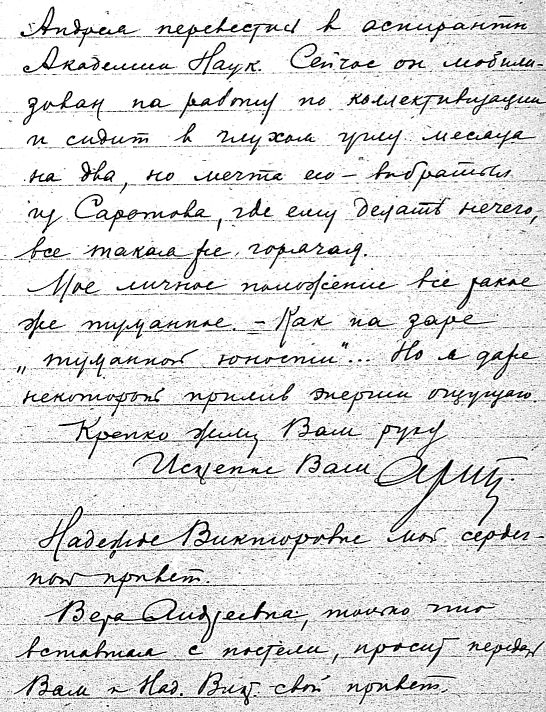 Андрея перевестись в аспиранты
Академии Наук. Сейчас он мобили-
зован на работу по коллективизации
и сидит в глухом углу месяца
на два, но мечта его – выбраться
из Саратова, где ему делать нечего,
все такая же горячая.
Мое личное положение все такое
же туманное. – Как на заре
„туманной юности"... Но я даже
некоторый прилив энергии ощущаю.
Крепко жму Вам руку
Искренне Ваш
Надежде Викторовне мой сердеч-
ной привет.
Вера Андреевна, только что
вставшая с постели, просит передать
Вам и Над. Викт. свой привет.